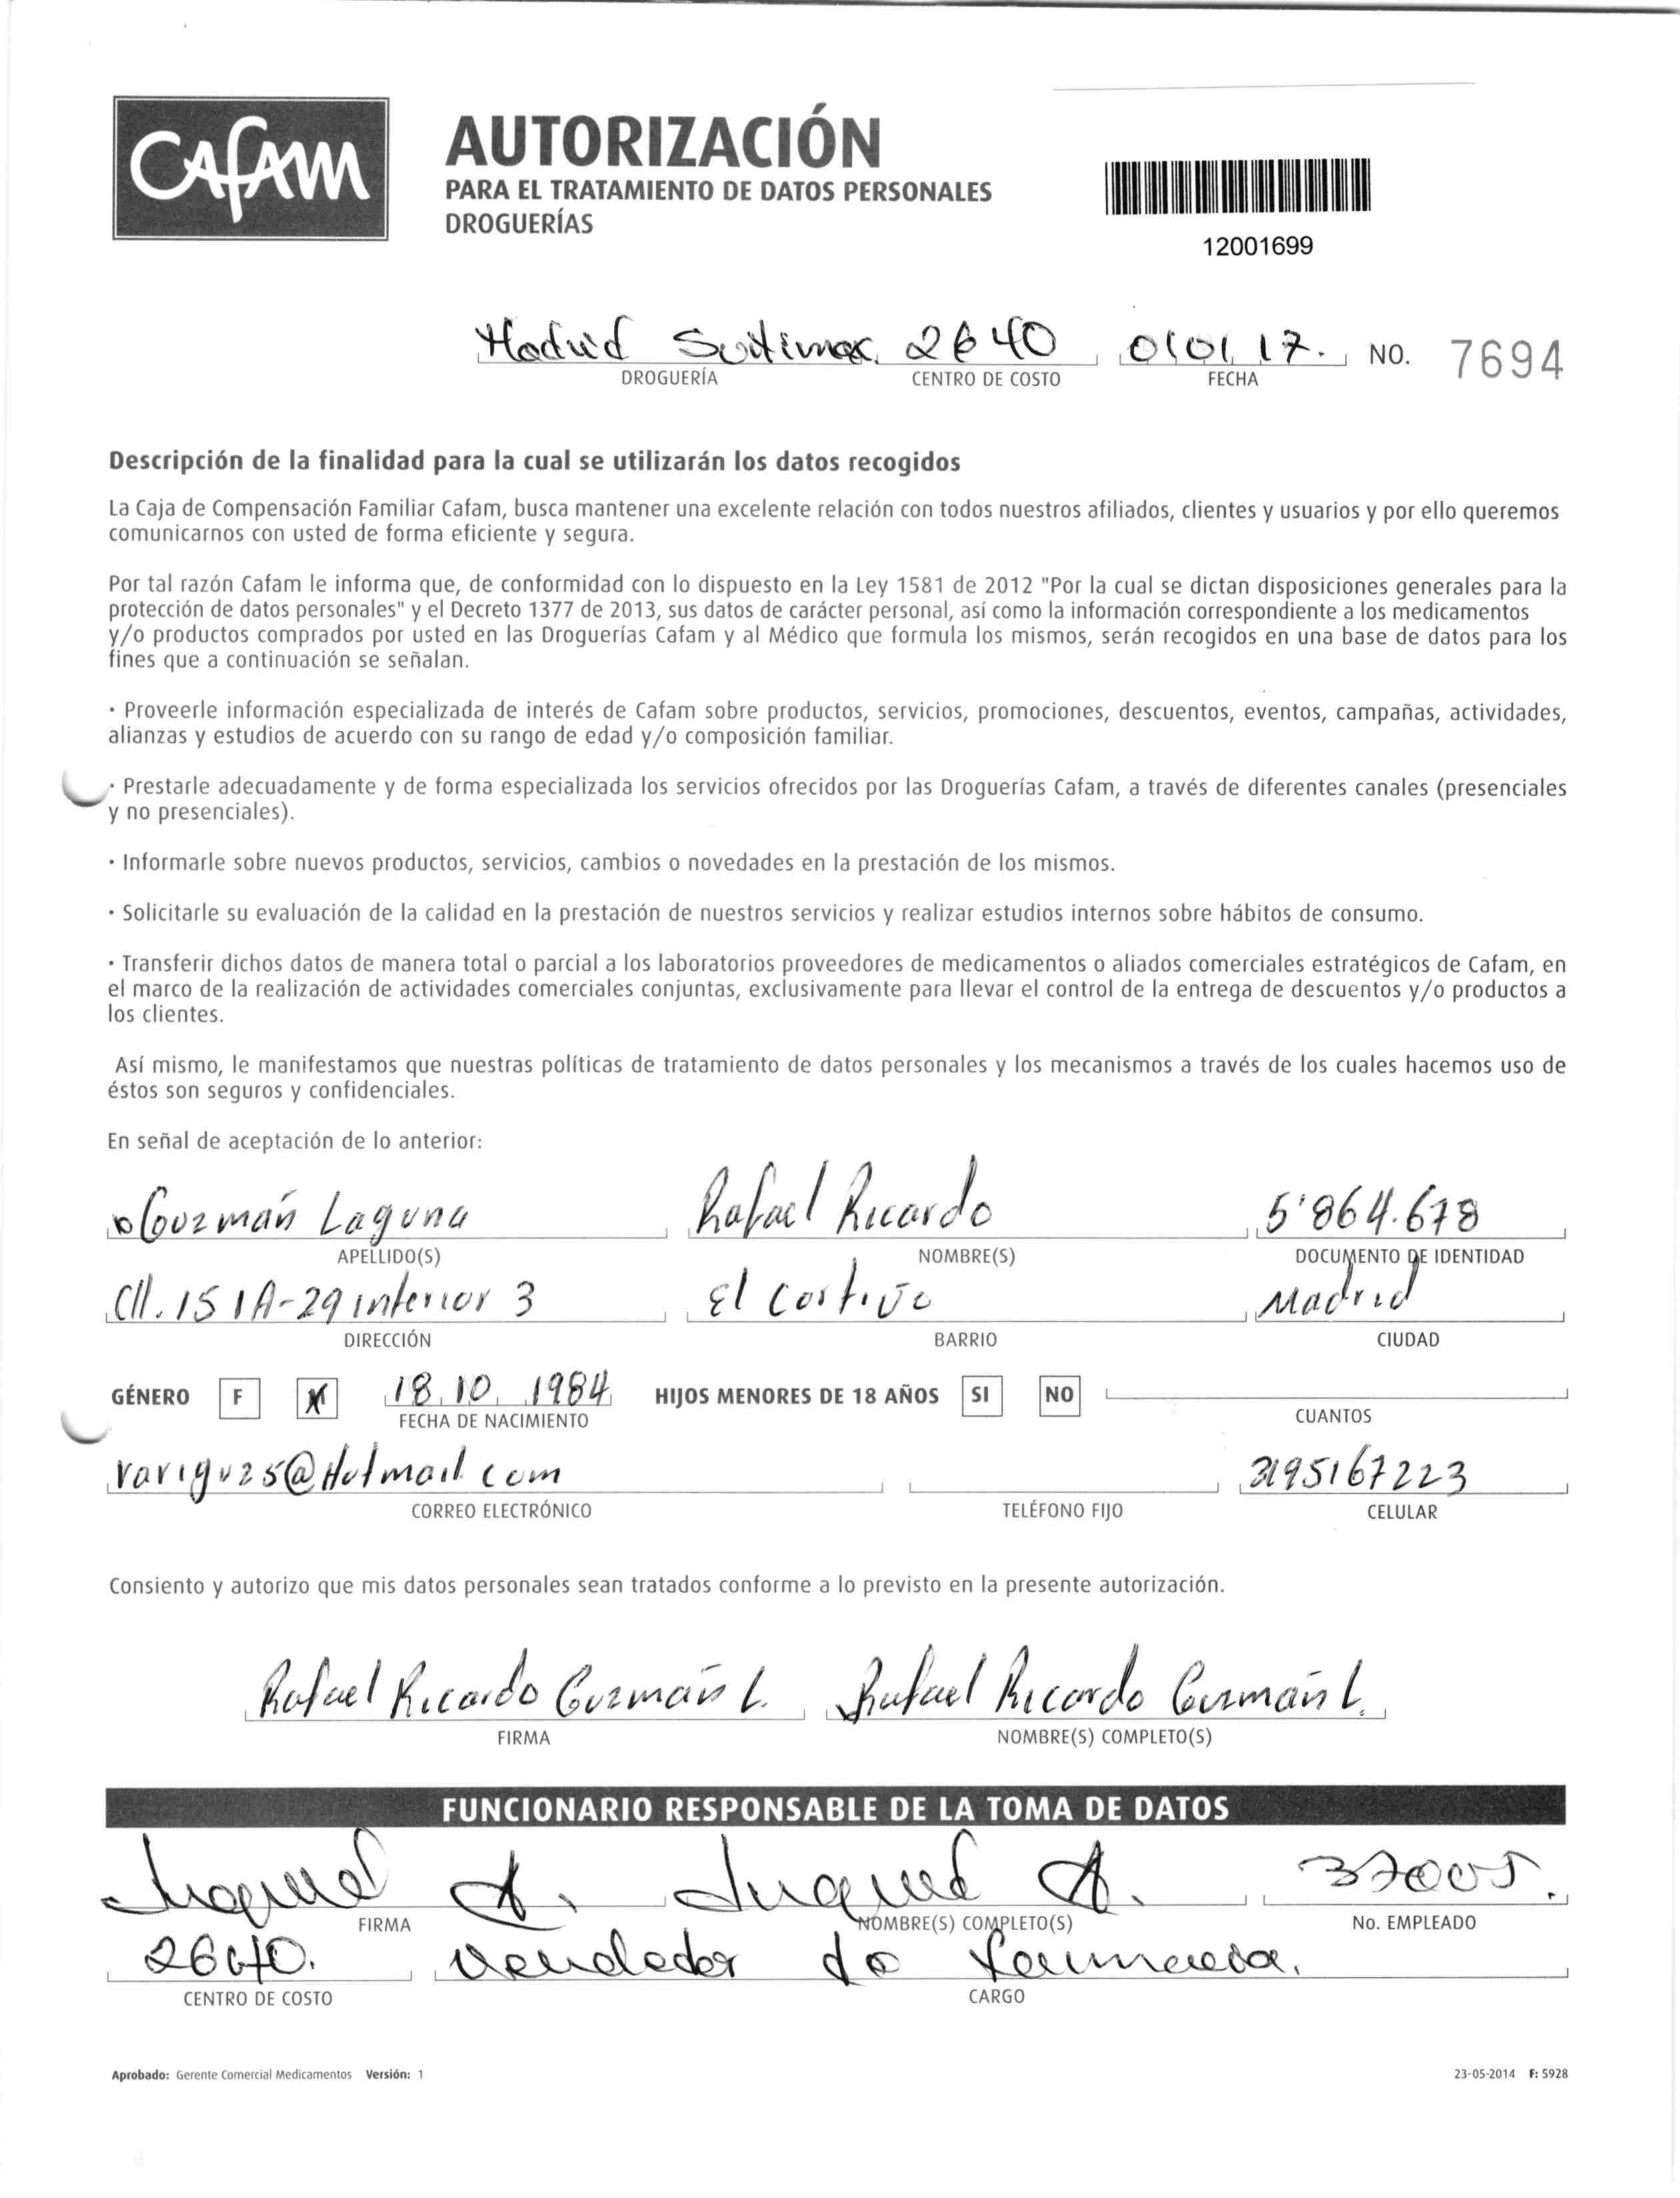 CAFAM
AUTORIZACIÓN
PARA EL TRATAMIENTO DE DATOS PERSONALES
DROGUERÍAS
12001699
Madrid 2640 01 01 17. NO. 7694
DROGUERÍA CENTRO DE COSTO FECHA
Descripción de la finalidad para la cual se utilizarán los datos recogidos
La Caja de Compensación Familiar Cafam, busca mantener una excelente relación con todos nuestros afiliados, clientes y usuarios y por ello queremos
comunicarnos con usted de forma eficiente y segura.
Por tal razón Cafam le informa que, de conformidad con lo dispuesto en la Ley 1581 de 2012 "Por la cual se dictan disposiciones generales para la
protección de datos personales" y el Decreto 1377 de 2013, sus datos de carácter personal, así como la información correspondiente a los medicamentos
y/o productos comprados por usted en las Droguerías Cafam y al Médico que formula los mismos, serán recogidos en una base de datos para los
fines que a continuación se señalan.
· Proveerle información especializada de interés de Cafam sobre productos, servicios, promociones, descuentos, eventos, campañas, actividades,
alianzas y estudios de acuerdo con su rango de edad y/o composición familiar.
· Prestarle adecuadamente y de forma especializada los servicios ofrecidos por las Droguerías Cafam, a través de diferentes canales (presenciales
y no presenciales).
· Informarle sobre nuevos productos, servicios, cambios o novedades en la prestación de los mismos.
· Solicitarle su evaluación de la calidad en la prestación de nuestros servicios y realizar estudios internos sobre hábitos de consumo.
· Transferir dichos datos de manera total o parcial a los laboratorios proveedores de medicamentos o aliados comerciales estratégicos de Cafam, en
el marco de la realización de actividades comerciales conjuntas, exclusivamente para llevar el control de la entrega de descuentos y/o productos a
los clientes.
Así mismo, le manifestamos que nuestras políticas de tratamiento de datos personales y los mecanismos a través de los cuales hacemos uso de
éstos son seguros y confidenciales.
En señal de aceptación de lo anterior:
Guzmán Laguna Rafael Ricardo 5'864.678
APELLIDO(S) NOMBRE(S) DOCUMENTO DE IDENTIDAD
Cll. 15 1A-29 interior 3 El Cortijo Madrid
DIRECCIÓN BARRIO CIUDAD
GÉNERO F M 18.10.1984 HIJOS MENORES DE 18 AÑOS SI NO
FECHA DE NACIMIENTO CUANTOS
rariguz5@Hotmail.com 3195167223
CORREO ELECTRÓNICO TELÉFONO FIJO CELULAR
Consiento y autorizo que mis datos personales sean tratados conforme a lo previsto en la presente autorización.
Rafael Ricardo Guzmán L. Rafael Ricardo Guzmán L.
FIRMA NOMBRE(S) COMPLETO(S)
FUNCIONARIO RESPONSABLE DE LA TOMA DE DATOS
A. A. 37005.
FIRMA NOMBRE(S) COMPLETO(S) No. EMPLEADO
2640. Vendedor de farmacia.
CENTRO DE COSTO CARGO
Aprobado: Gerente Comercial Medicamentos Versión: 1 23-05-2014 F: 5928